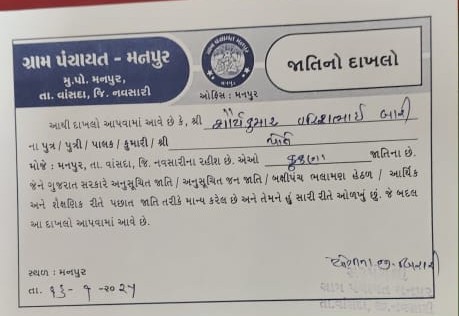 ગ્રામ પંચાયત - મનપુર
મુ.પો. મનપુર,
તા. વાંસદા, જિ. નવસારી
ઓફિસ : મનપુર
જાતિનો દાખલો
આથી દાખલો આપવામાં આવે છે કે, શ્રી
ના પુત્ર / પુત્રી / પાલક / કુમારી / શ્રી પોતે
મોજે : મનપુર, તા. વાંસદા, જિ. નવસારીના રહીશ છે. એઓ કુકણા જાતિના છે.
જેને ગુજરાત સરકારે અનુસૂચિત જાતિ / અનુસૂચિત જન જાતિ / બક્ષીપંચ ભલામણ હેઠળ / આર્થિક
અને શૈક્ષણિક રીતે પછાત જાતિ તરીકે માન્ય કરેલ છે અને તેમને હું સારી રીતે ઓળખું છું. જે બદલ
આ દાખલો આપવામાં આવે છે.
સ્થળ : મનપુર
તા.